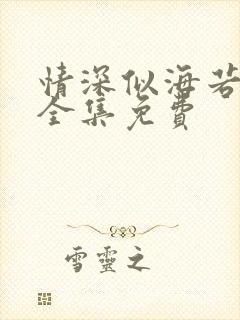 情深似海若
全集免費
雪靈之